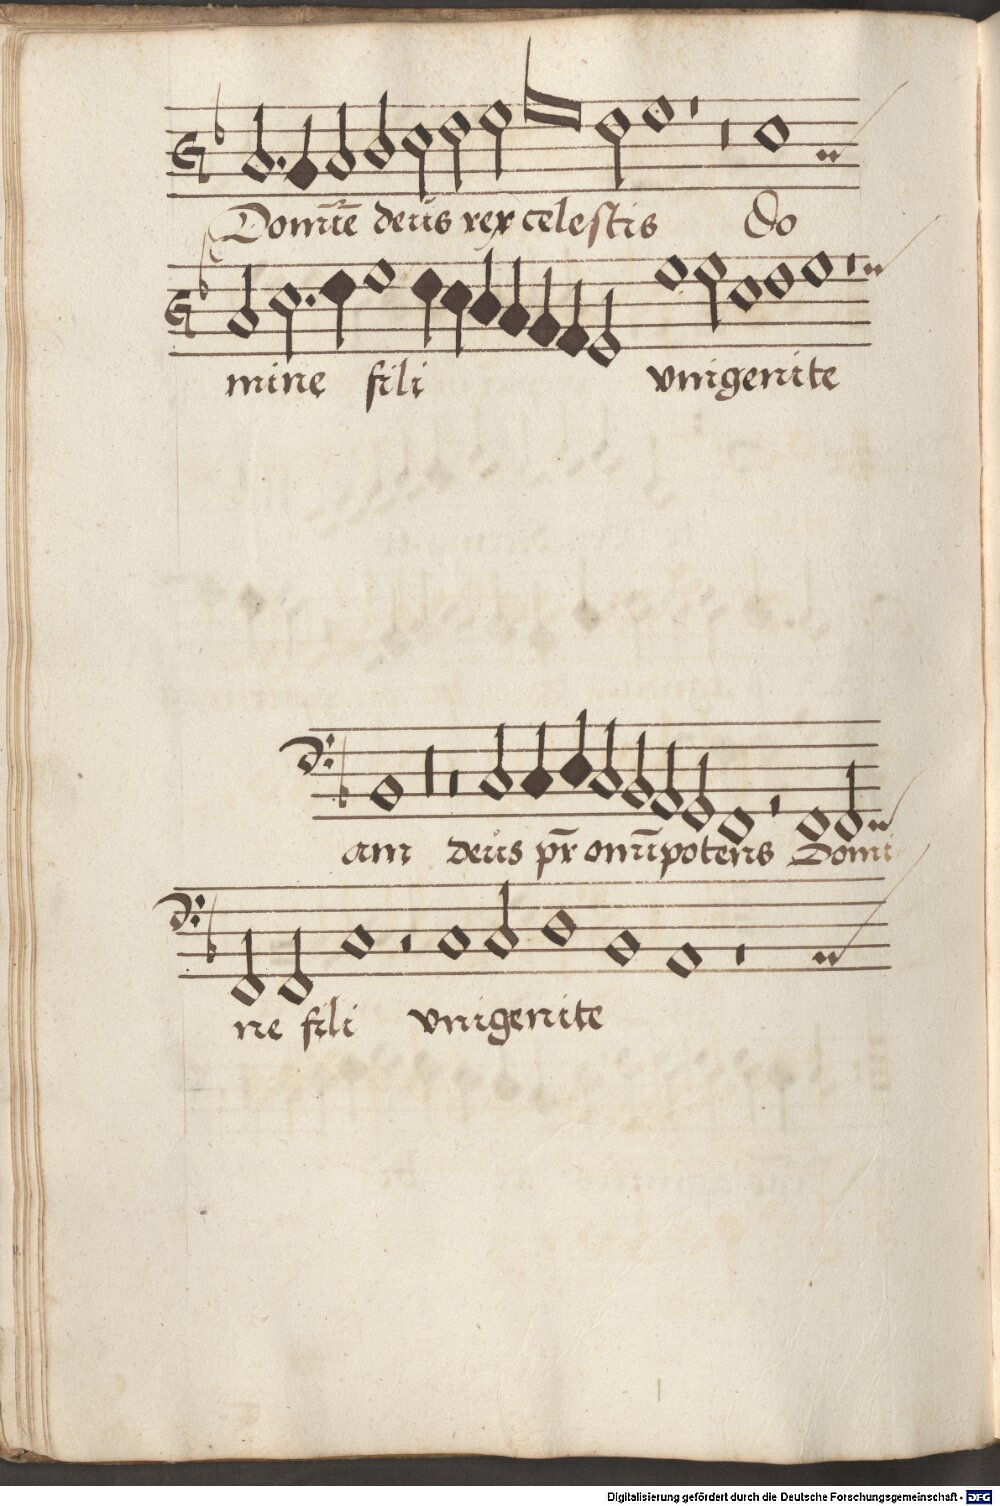 Domīe deūs rex celestis Do
mine fili vnigenite
am deūs pr̄ omīpotens Domi
ne fili vnigenite
Digitalisierung gefördert durch die Deutsche Forschungsgemeinschaft - DFG